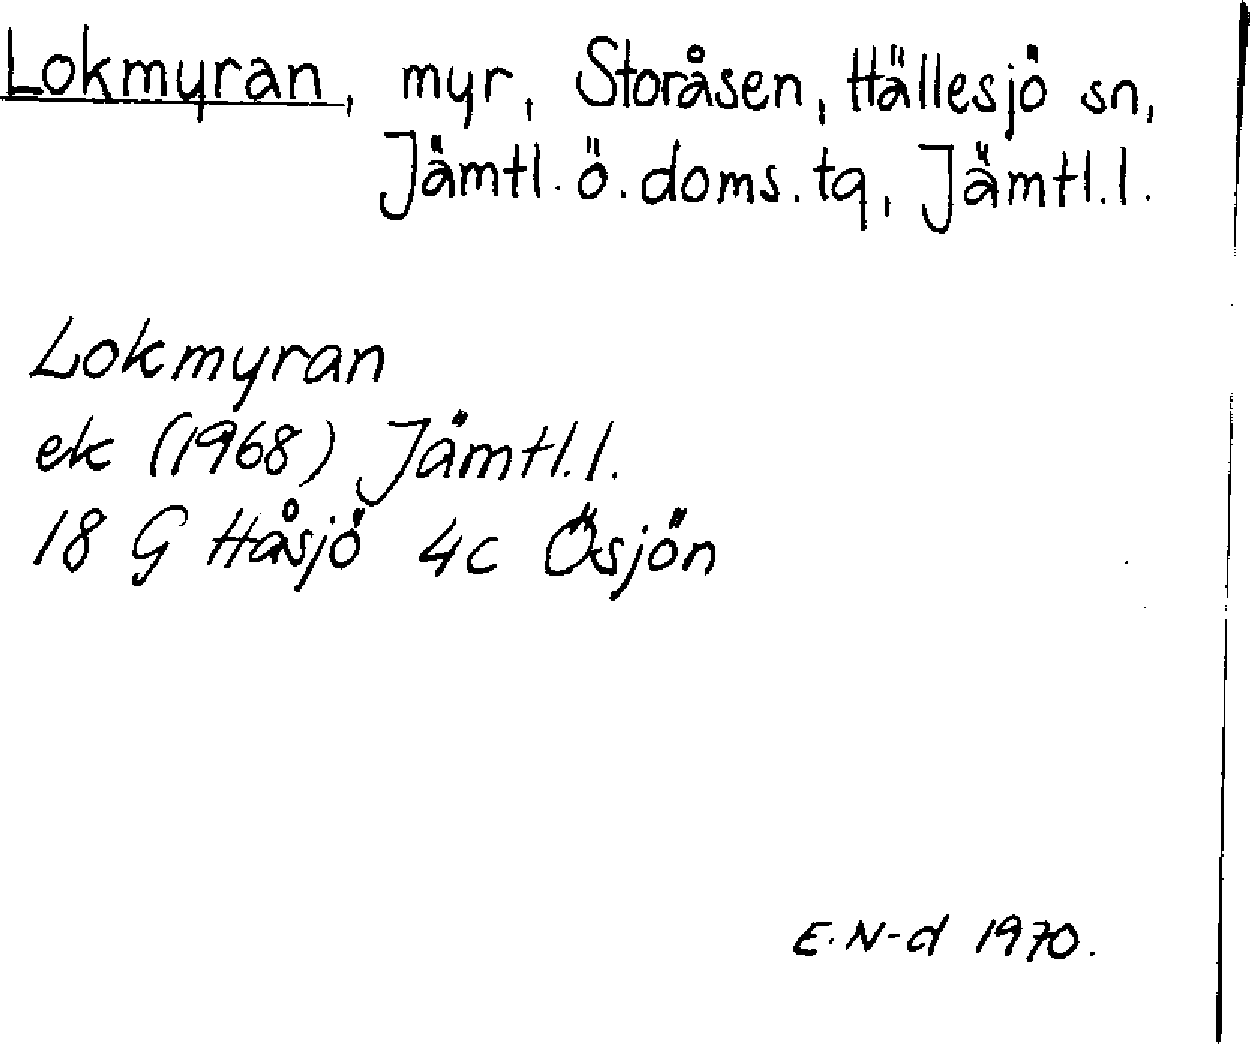 Lokmyran, myr, Storåsen, Hällesjö sn,
Jämtl. ö. doms. tg, Jämtl. l.
Lokmyran
ek (1968) Jämtl. l.
18 G Håsjö 4c Ösjön
E. N-d 1970.